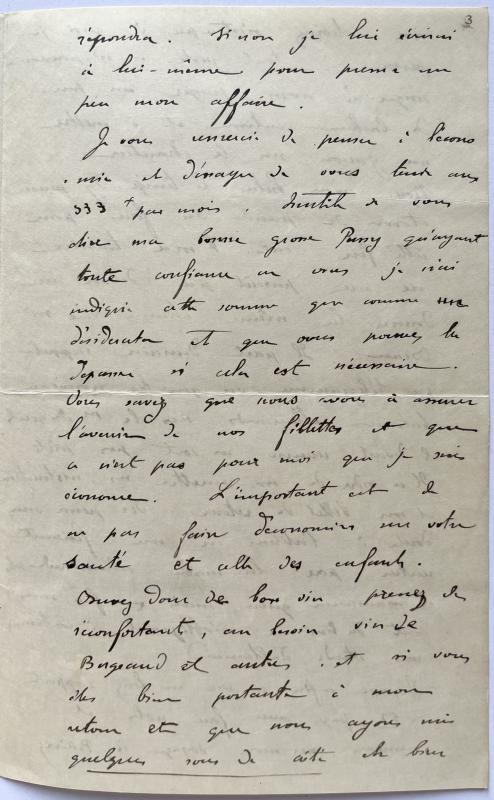 3
répondra. Sinon je lui écrirai
à lui-même pour presser un
peu mon affaire.
Je vous remercie de penser à l'écono
mie et d'essayer de vous tenir aux
333 f par mois. Inutile de vous
dire ma bonne grosse Pussy qu'ayant
toute confiance en vous je n'ai
indiqué cette somme que comme une
désiderata et que vous pouvez la
dépasser si cela est nécessaire.
Vous savez que nous avons à assurer
l'avenir de nos fillettes et que
ce n'est pas pour moi que je suis
économe. L'important est de
ne pas faire d'économies sur votre
santé et celle des enfants.
Buvez donc de bon vin prenez des
réconfortants, au besoin vin de
et autres. et si vous
êtes bien portante à mon
retour et que nous ayons mis
quelques sous de côté eh bien